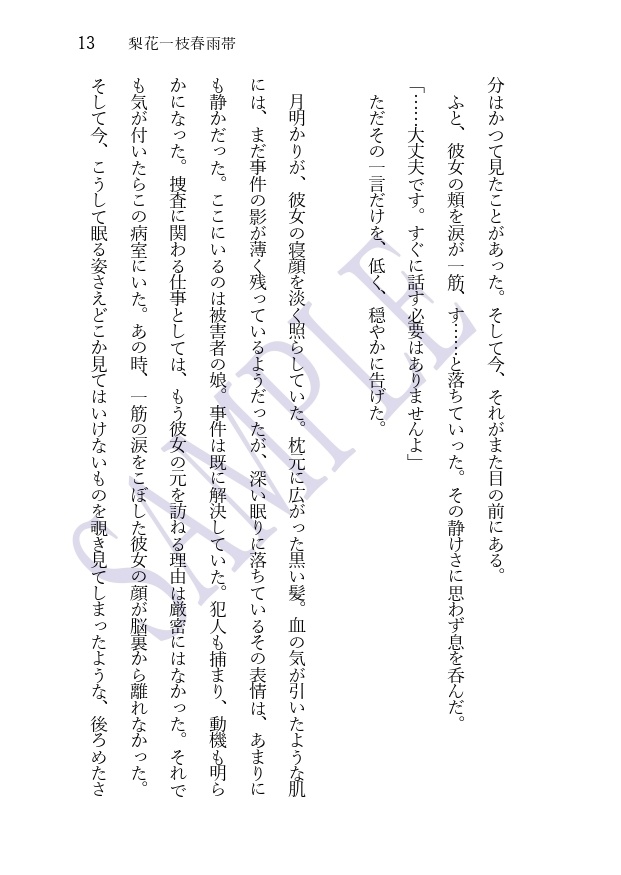 13 梨花一枝春雨帯
分はかつて見たことがあった。そして今、それがまた目の前にある。
ふと、彼女の頬を涙が一筋、す……と落ちていった。その静けさに思わず息を呑んだ。
「……大丈夫です。すぐに話す必要はありませんよ」
ただその一言だけを、低く、穏やかに告げた。
月明かりが、彼女の寝顔を淡く照らしていた。枕元に広がった黒い髪。血の気が引いたような肌
には、まだ事件の影が薄く残っているようだったが、深い眠りに落ちているその表情は、あまりに
も静かだった。ここにいるのは被害者の娘。事件は既に解決していた。犯人も捕まり、動機も明ら
かになった。捜査に関わる仕事としては、もう彼女の元を訪ねる理由は厳密にはなかった。それで
も気が付いたらこの病室にいた。あの時、一筋の涙をこぼした彼女の顔が脳裏から離れなかった。
そして今、こうして眠る姿さえどこか見てはいけないものを覗き見てしまったような、後ろめたさ
SAMPLE